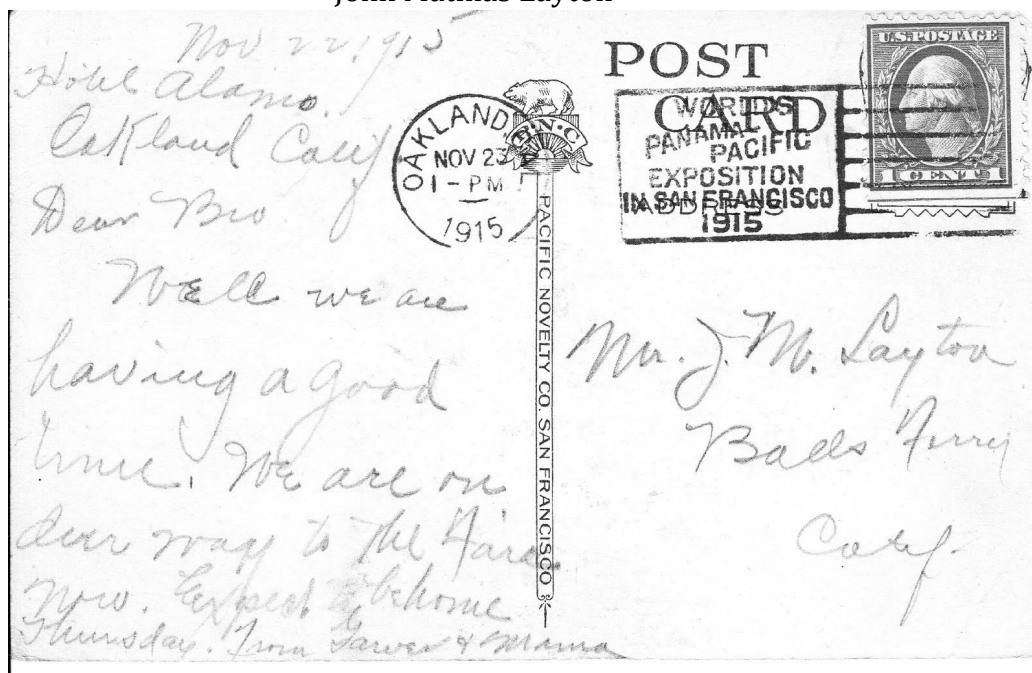 John Mathias Layton
Nov 22 1915
Hotel Alamo.
Oakland Calif
Dear Bro
Well we are
having a good
time. We are on
our way to the Fair
now. Expect to be home
Thursday. From & Mama
OAKLAND
NOV 23
1-PM
1915
P.N.C
PACIFIC NOVELTY CO. SAN FRANCISCO
POST
CARD
ADDRESS
WORLD'S
PANAMA
PACIFIC
EXPOSITION
IN SAN FRANCISCO
1915
U.S. POSTAGE
1 CENT 1
Mr. J. M. Layton
Balls Ferry
Calif.